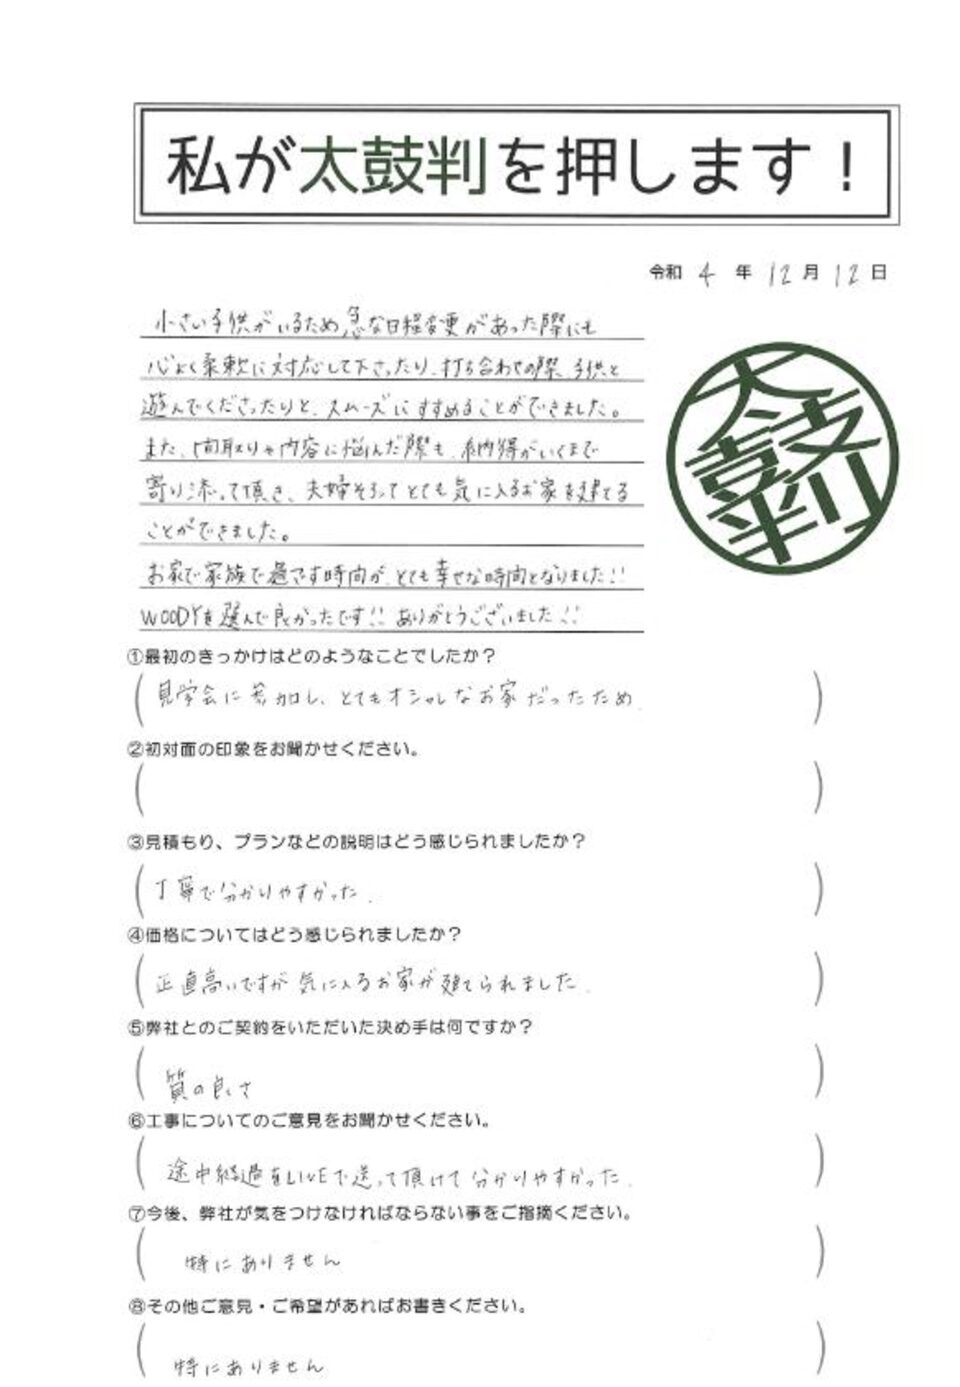 私が太鼓判を押します！
令和 4 年 12 月 12 日
小さい子供がいるため、急な日程変更があった際にも
心よく柔軟に対応して下さったり、打ち合わせの際、子供と
遊んでくださったりと、スムーズにすすめることができました。
また、間取りや内容に悩んだ際も、納得がいくまで
寄り添って頂き、夫婦そろってとても気に入るお家を建てる
ことができました。
お家で家族で過ごす時間が、とても幸せな時間となりました!!
WOODYを選んで良かったです!! ありがとうございました!!
太鼓判
①最初のきっかけはどのようなことでしたか？
見学会に参加し、とてもオシャレなお家だったため.
②初対面の印象をお聞かせください。
③見積もり、プランなどの説明はどう感じられましたか？
丁寧で分かりやすかった.
④価格についてはどう感じられましたか？
正直高いですが気に入るお家が建てられました.
⑤弊社とのご契約をいただいた決め手は何ですか？
質の良さ
⑥工事についてのご意見をお聞かせください。
途中経過をLINEで送って頂けて分かりやすかった.
⑦今後、弊社が気をつけなければならない事をご指摘ください。
特にありません
⑧その他ご意見・ご希望があればお書きください。
特にありません